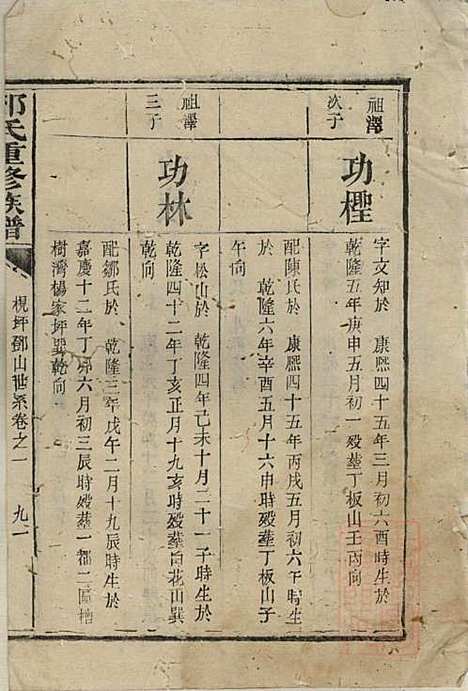 祖澤
次子
功樫
字文知於 康熙四十五年三月初六酉時生於
乾隆五年庚申五月初一殁塟丁板山壬丙向
配陳氏於 康熙四十五年丙戌五月初六午時生
於 乾隆六年辛酉五月十六申時殁塟丁板山子
午向
祖澤
三子
功林
字松山於 乾隆四年己未十月二十一子時生於
乾隆四十二年丁亥正月十九亥時殁塟白花山巽
乾向
配鄒氏於 乾隆三年戊午二月十九辰時生於
嘉慶十二年丁卯六月初三辰時殁塟一都二區檜
樹灣楊家坪巽乾向
氏重修族譜
梘坪鄧山世系卷之一
九一